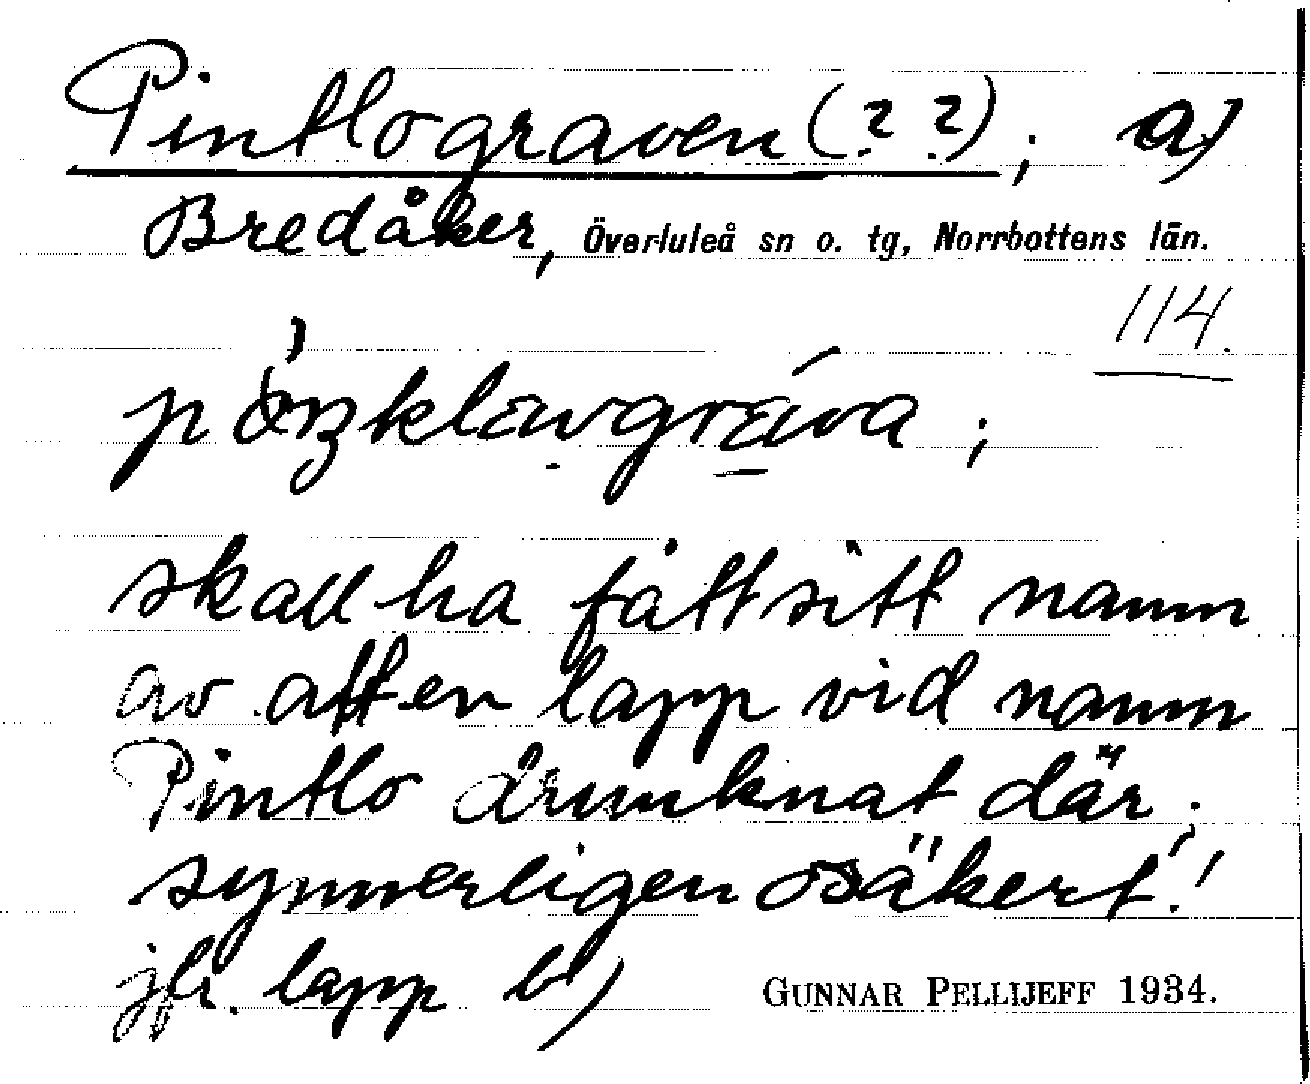 Pintlograven (? ?); a)
Bredåker, Överluleå sn o. tg, Norrbottens län.
114.
skall ha fått sitt namn
av att en lapp vid namn
Pintlo drunknat där;
synnerligen osäkert!
jfr. lapp b)
GUNNAR PELLIJEFF 1934.